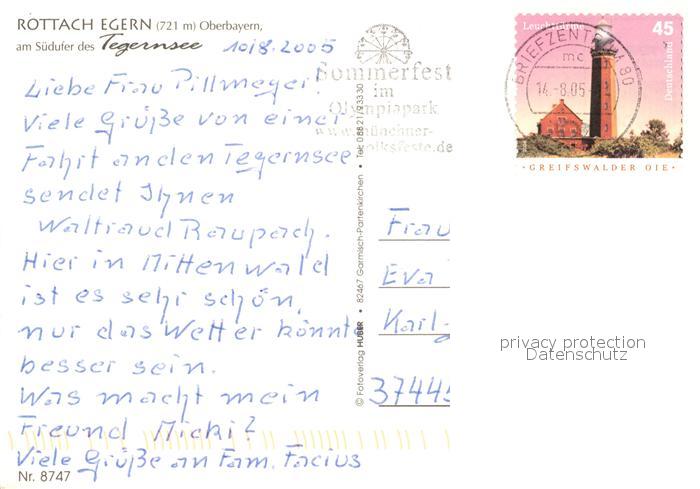 ROTTACH EGERN (721 m) Oberbayern,
am Südufer des Tegernsee
10.8.2005
Liebe Frau Pillmeyer!
Viele Grüße von einer
Fahrt an den Tegernsee
sendet Ihnen
Waltraud Raupach.
Hier in Mittenwald
ist es sehr schön,
nur das Wetter könnte
besser sein.
Was macht mein
Freund Micki?
Viele Grüße an Fam. Facius
Nr. 8747
© Fotoverlag HUBER • 82467 Garmisch-Partenkirchen • Tel. 08821/93330
Sommerfest
im
Olympiapark
www.münchner-
volksfeste.de
BRIEFZENTRUM 80
mc
14.-8.05
Leuchttürme
45
Deutschland
GREIFSWALDER OIE
Frau
Eva
Karl-
37445
privacy protection
Datenschutz